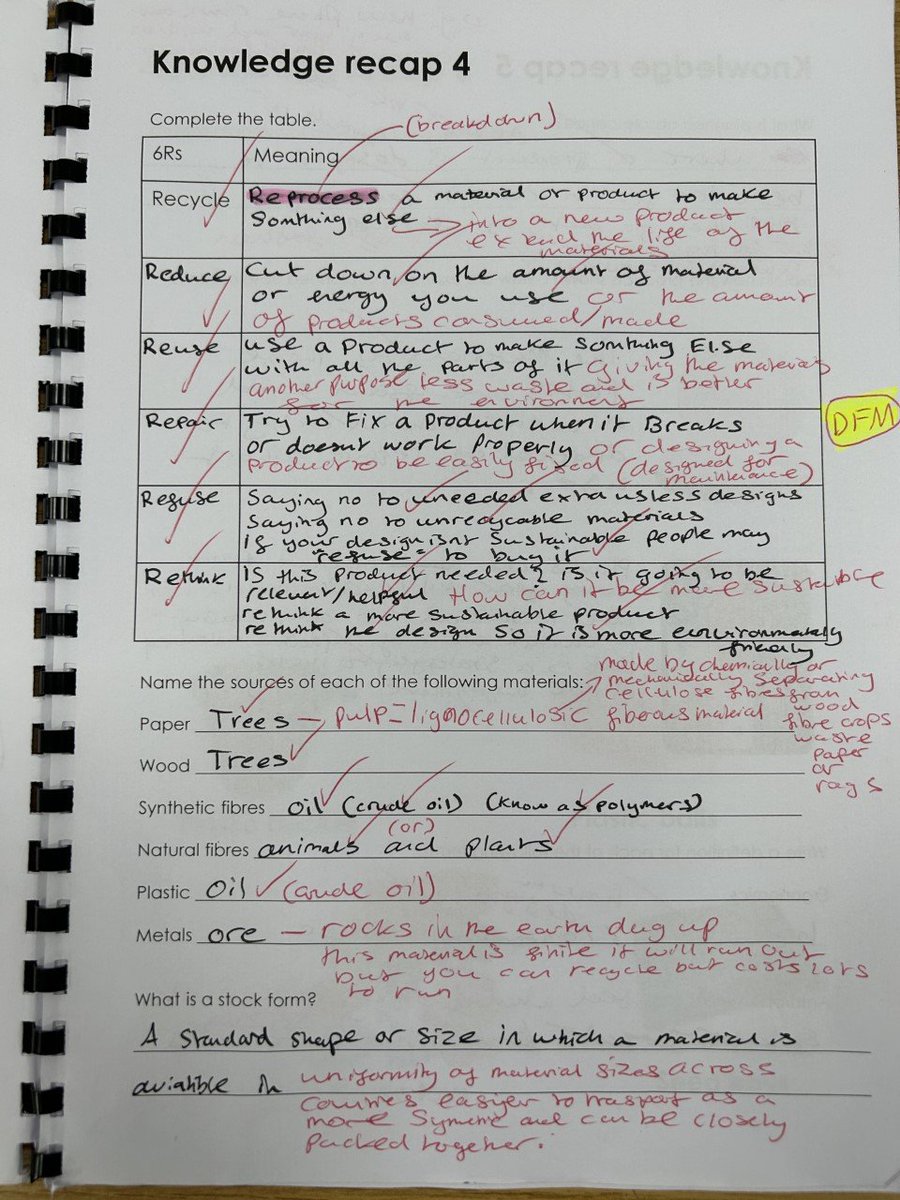 Knowledge recap 4
Complete the table.
(breakdown)
6Rs Meaning
Recycle Reprocess a material or product to make
Somthing else into a new product
extend the life of the
materials
Reduce Cut down on the amount of material
or energy you use or the amount
of products consumed/made
Reuse use a Product to make Somthing Else
with all the parts of it Giving the materials
another purpose less waste and is better
for the environment
Repair Try to Fix a Product when it Breaks
or doesnt work Properly or designing a
product to be easily fixed (designed for
maintence)
DFM
Refuse Saying no to uneeded extra usless designs
Saying no to unrecycable materials
If your design isnt Sustainable people may
"refuse" to buy it
Rethink Is this product needed? is it going to be
relevent/helpful How can it be more Sustainable
rethink a more sustainable product
rethink the design so it is more environmentely
friendly
Name the sources of each of the following materials:
made by chemically or
mechanically separating
cellulose fibres from
wood
fibre crops
waste
paper
or
rags
Paper Trees – pulp = lignocellulosic fibrous material
Wood Trees
Synthetic fibres oil (crude oil) (know as polymers)
(or)
Natural fibres animals and plants
Plastic Oil (crude oil)
Metals ore – rocks in the earth dug up
this material is finite it will run out
but you can recycle but costs lots
to run
What is a stock form?
A standard shape or size in which a material is
avialible in uniformity of material sizes across
easier to transport as a
more and can be closely
packed together.